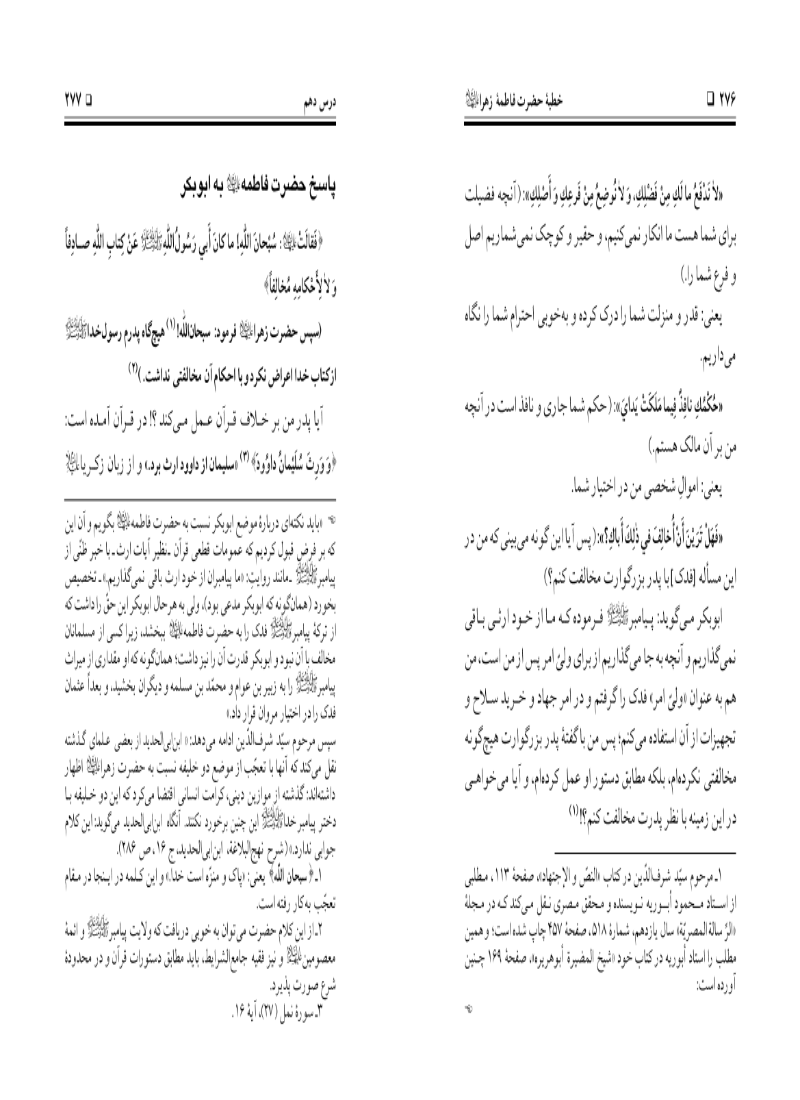 ۲۷۶ ❑ خطبهٔ حضرت فاطمهٔ زهرا
«لاٰ تَدْفَعُ ما لَكِ مِنْ فَضْلِكِ، وَ لاٰ نُوضِعُ مِنْ فَرعِكِ وَ أَصْلِكِ»: (آنچه فضیلت
برای شما هست ما انکار نمی‌کنیم، و حقیر و کوچک نمی‌شماریم اصل
و فرع شما را.)
یعنی: قدر و منزلت شما را درک کرده و به‌خوبی احترام شما را نگاه
می‌داریم.
«حُکْمُكِ نافِذٌ فِیما مَلَكَتْ یَدايَ»: (حکم شما جاری و نافذ است در آنچه
من بر آن مالک هستم.)
یعنی: اموالِ شخصی من در اختیار شما.
«فَهَلْ تَرَیْنَ أَنْ أُخالِفَ في ذٰلِكَ أَباكِ؟»: (پس آیا این گونه می‌بینی که من در
این مسأله [فدک] با پدر بزرگوارت مخالفت کنم؟)
ابوبکر می‌گوید: پیامبر فرموده که ما از خود ارثی باقی
نمی‌گذاریم و آنچه به جا می‌گذاریم از برای ولیّ امر پس از من است، من
هم به عنوان «ولیّ امر» فدک را گرفتم و در امر جهاد و خرید سلاح و
تجهیزات از آن استفاده می‌کنم؛ پس من با گفتهٔ پدر بزرگوارت هیچ‌گونه
مخالفتی نکرده‌ام، بلکه مطابق دستور او عمل کرده‌ام، و آیا می‌خواهی
در این زمینه با نظر پدرت مخالفت کنم؟!(۱)
۱ـ مرحوم سیّد شرف‌الدّین در کتاب «النصّ و الإجتهاد»، صفحهٔ ۱۱۳، مطلبی
از استاد محمود أبوریه نویسنده و محقق مصری نقل می‌کند که در مجلهٔ
«الرِّسالة المصریّة» سال یازدهم، شمارهٔ ۵۱۸، صفحهٔ ۴۵۷ چاپ شده است؛ و همین
مطلب را استاد أبوریه در کتاب خود «شیخ المضیرة أبوهریره»، صفحهٔ ۱۶۹ چنین
آورده است:
درس دهم ❑ ۲۷۷
پاسخ حضرت فاطمه به ابوبکر
﴿فَقالَتْ: سُبْحانَ اللّٰهِ! ما کانَ أَبي رَسُولُ اللّٰهِ عَنْ کِتابِ اللّٰهِ صادِفاً
وَ لاٰ لِأَحْکامِهِ مُخالِفاً﴾
(سپس حضرت زهرا فرمود: سبحان‌اللّٰه!(۱) هیچ‌گاه پدرم رسول خدا
از کتاب خدا اعراض نکرد و با احکام آن مخالفتی نداشت.)(۲)
آیا پدر من بر خلاف قرآن عمل می‌کند؟! در قرآن آمده است:
﴿وَ وَرِثَ سُلَیْمانُ داوُودَ﴾(۳) «سلیمان از داوود ارث برد.» و از زبان زکریا
«باید نکته‌ای دربارهٔ موضع ابوبکر نسبت به حضرت فاطمه بگویم و آن این
که بر فرض قبول کردیم که عمومات قطعی قرآن ـ نظیر آیات ارث ـ با خبر ظنّی از
پیامبر ـ مانند روایتِ: «ما پیامبران از خود ارث باقی نمی‌گذاریم.» ـ تخصیص
بخورد (همان‌گونه که ابوبکر مدعی بود)، ولی به هر حال ابوبکر این حقّ را داشت که
از ترکهٔ پیامبر فدک را به حضرت فاطمه ببخشد، زیرا کسی از مسلمانان
مخالف با آن نبود و ابوبکر قدرت آن را نیز داشت؛ همان‌گونه که او مقداری از میراث
پیامبر را به زبیر بن عوام و محمّد بن مسلمه و دیگران بخشید، و بعداً عثمان
فدک را در اختیار مروان قرار داد.»
سپس مرحوم سیّد شرف‌الدّین ادامه می‌دهد: «ابن‌ابی‌الحدید از بعضی علمای گذشته
نقل می‌کند که آنها با تعجّب از موضع دو خلیفه نسبت به حضرت زهرا اظهار
داشته‌اند: گذشته از موازین دینی، کرامت انسانی اقتضا می‌کرد که این دو خلیفه با
دختر پیامبر خدا این چنین برخورد نکنند. آنگاه ابن‌ابی‌الحدید می‌گوید: این کلام
جوابی ندارد.» (شرح نهج‌البلاغة، ابن‌ابی‌الحدید، ج ۱۶، ص ۲۸۶).
۱ـ ﴿سبحان اللّٰه﴾ یعنی: «پاک و منزّه است خدا.» و این کلمه در اینجا در مقام
تعجّب به کار رفته است.
۲ـ از این کلام حضرت می‌توان به خوبی دریافت که ولایت پیامبر و ائمهٔ
معصومین و نیز فقیه جامع‌الشرایط، باید مطابق دستورات قرآن و در محدودهٔ
شرع صورت پذیرد.
۳ـ سورهٔ نمل (۲۷)، آیهٔ ۱۶.